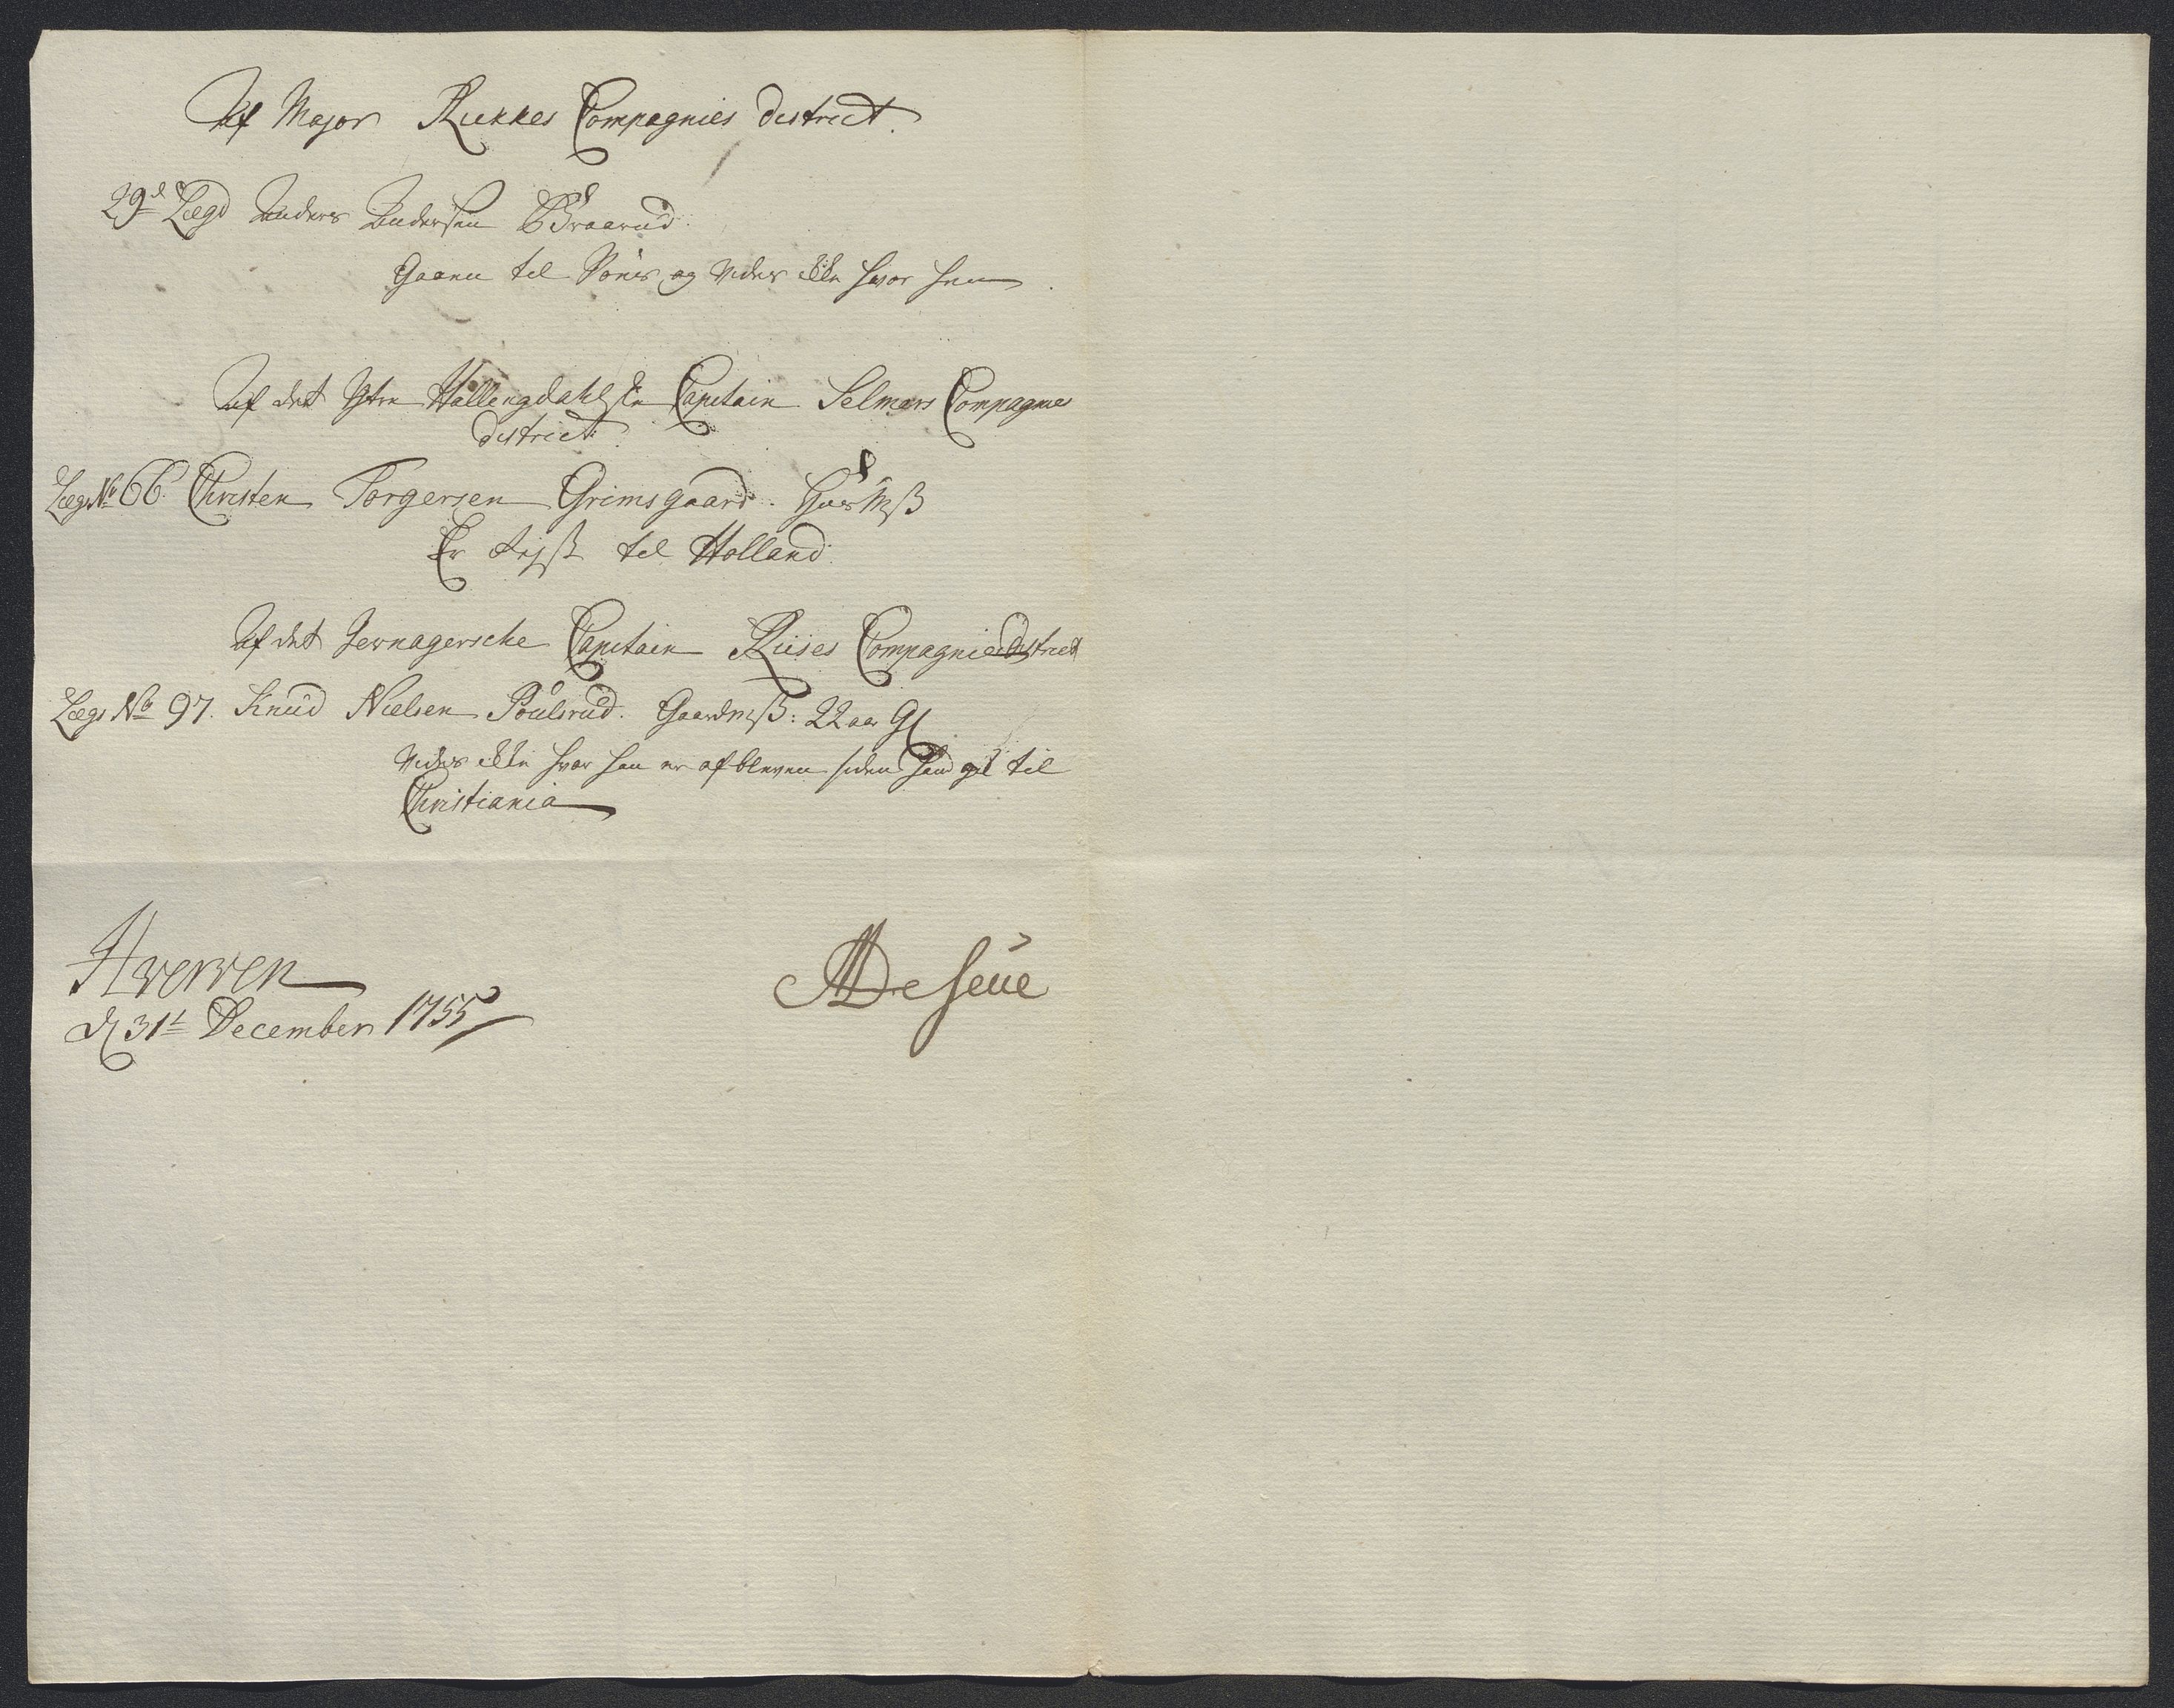 Af Major Rukkes Compagnies District.
29de Lægd Anders Andersen Braarud.
Gaaen til Søes og vides ikke hvor hen
Af det Ytre Hallengdahlske Capitain Selmers Compagnies
District
Lægs No 66. Christen Torgersen Grimsgaard.
Er Rejst til Holland.
Af det Jevnagersche Capitain Riises Compagnie District
Lægs No 97. Knud Nielsen Poulsrud. Gaardmß: 22 aar Gl
vides ikke hvor han er afbleven siden Hand gik til
Christiania
Hverven
d 31t December 1755
De Seue